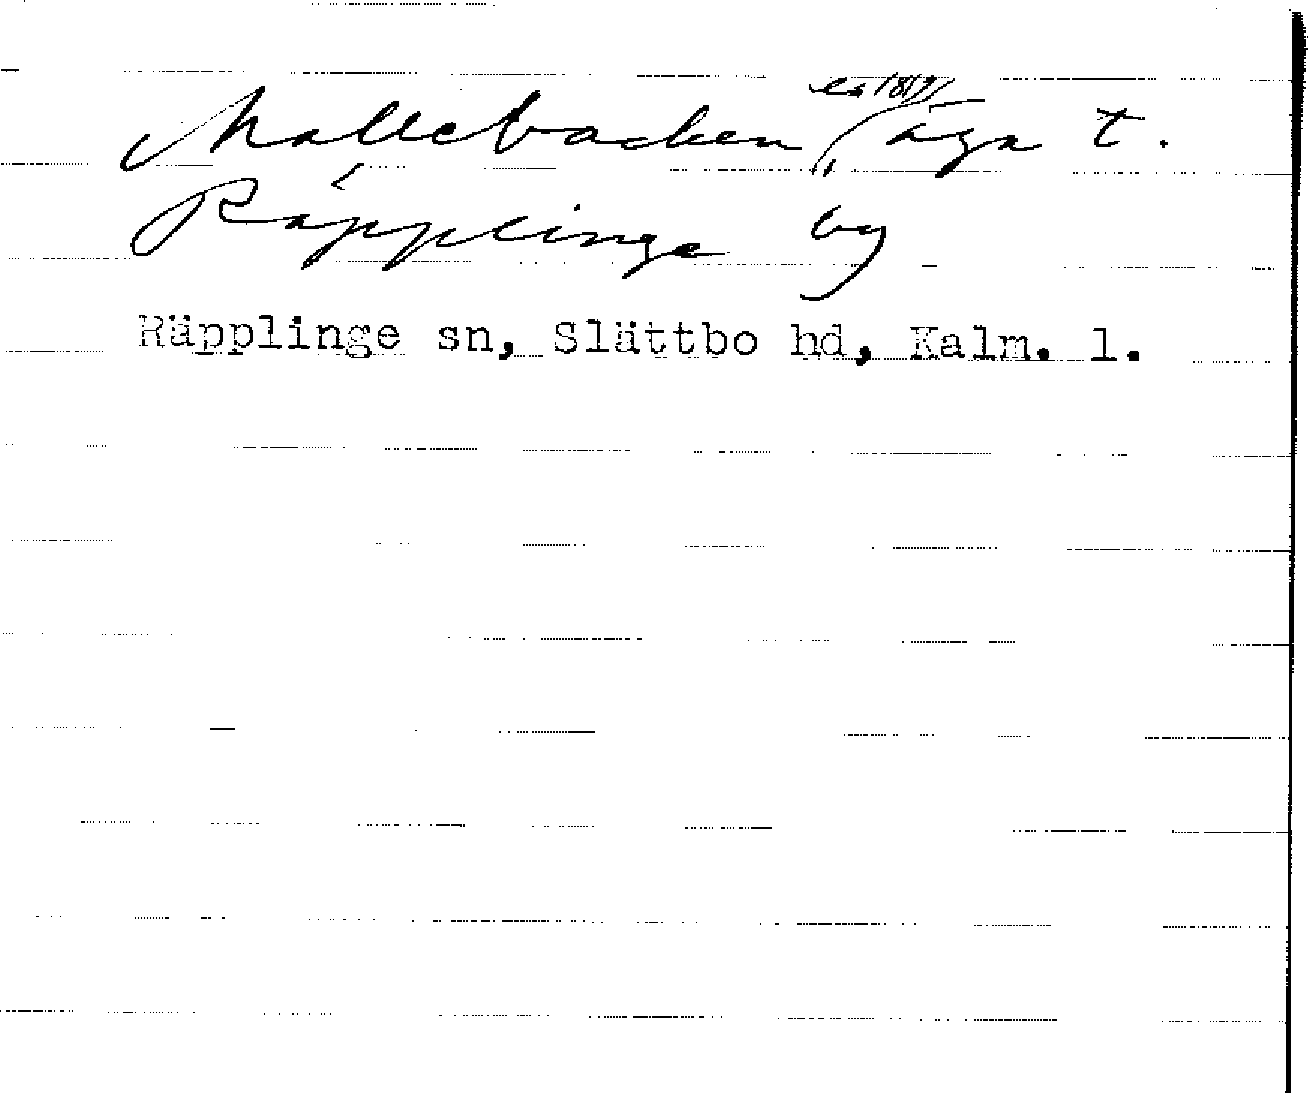 Mallebacken äga t.
Räpplinge by
Räpplinge sn, Slättbo hd, Kalm. l.